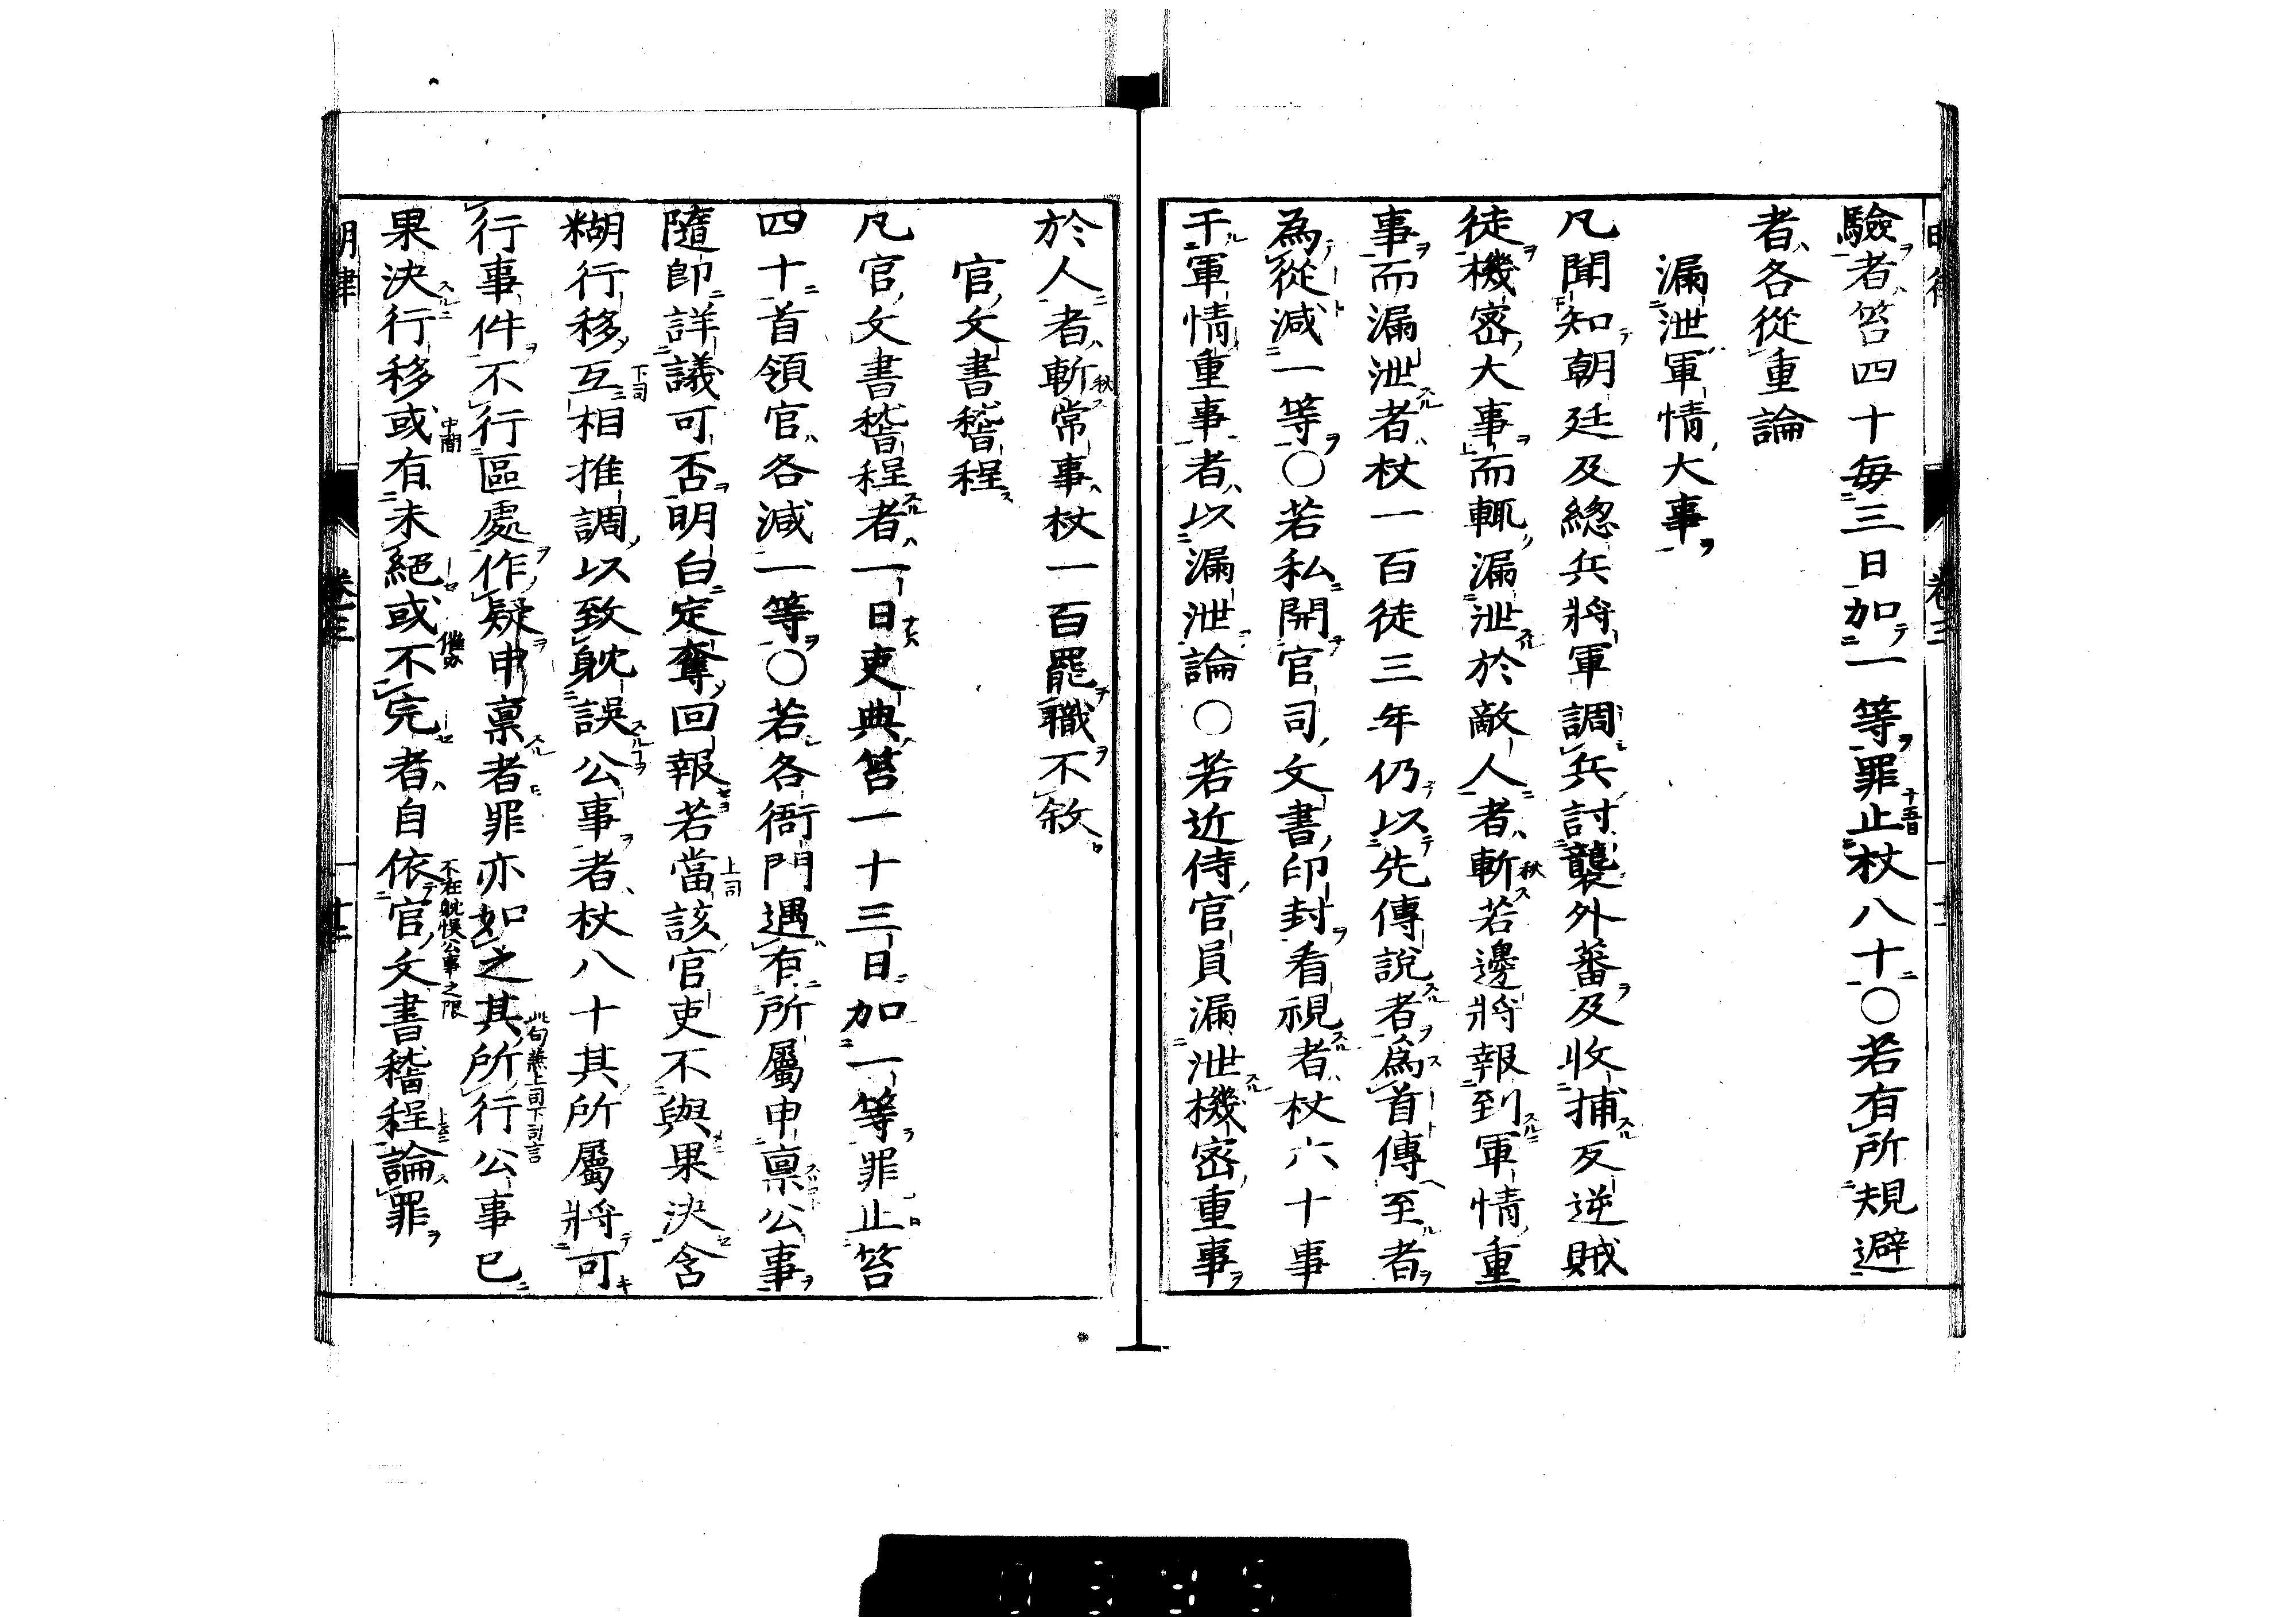 驗者笞四十每三日加一等罪止杖八十○若有所規避
者各從重論
漏泄軍情大事
凡聞知朝廷及總兵將軍調兵討襲外蕃及收捕反逆賊
徒機密大事而輒漏泄於敵人者斬若邊將報到軍情重
事而漏泄者杖一百徒三年仍以先傳說者為首傳至者
為從減一等○若私開官司文書印封看視者杖六十事
干軍情重事者以漏泄論○若近侍官員漏泄機密重事
於人者斬常事杖一百罷職不敘
官文書稽程
凡官文書稽程者一日吏典笞一十三日加一等罪止笞
四十首領官各減一等○若各衙門遇有所屬申稟公事
隨即詳議可否明白定奪回報若當該官吏不與果決含
糊行移互相推調以致躭誤公事者杖八十其所屬將可
行事件不行區處作疑申稟者罪亦如之其所行公事已
果決行移或有未絕或不完者自依官文書稽程論罪
明律
卷三